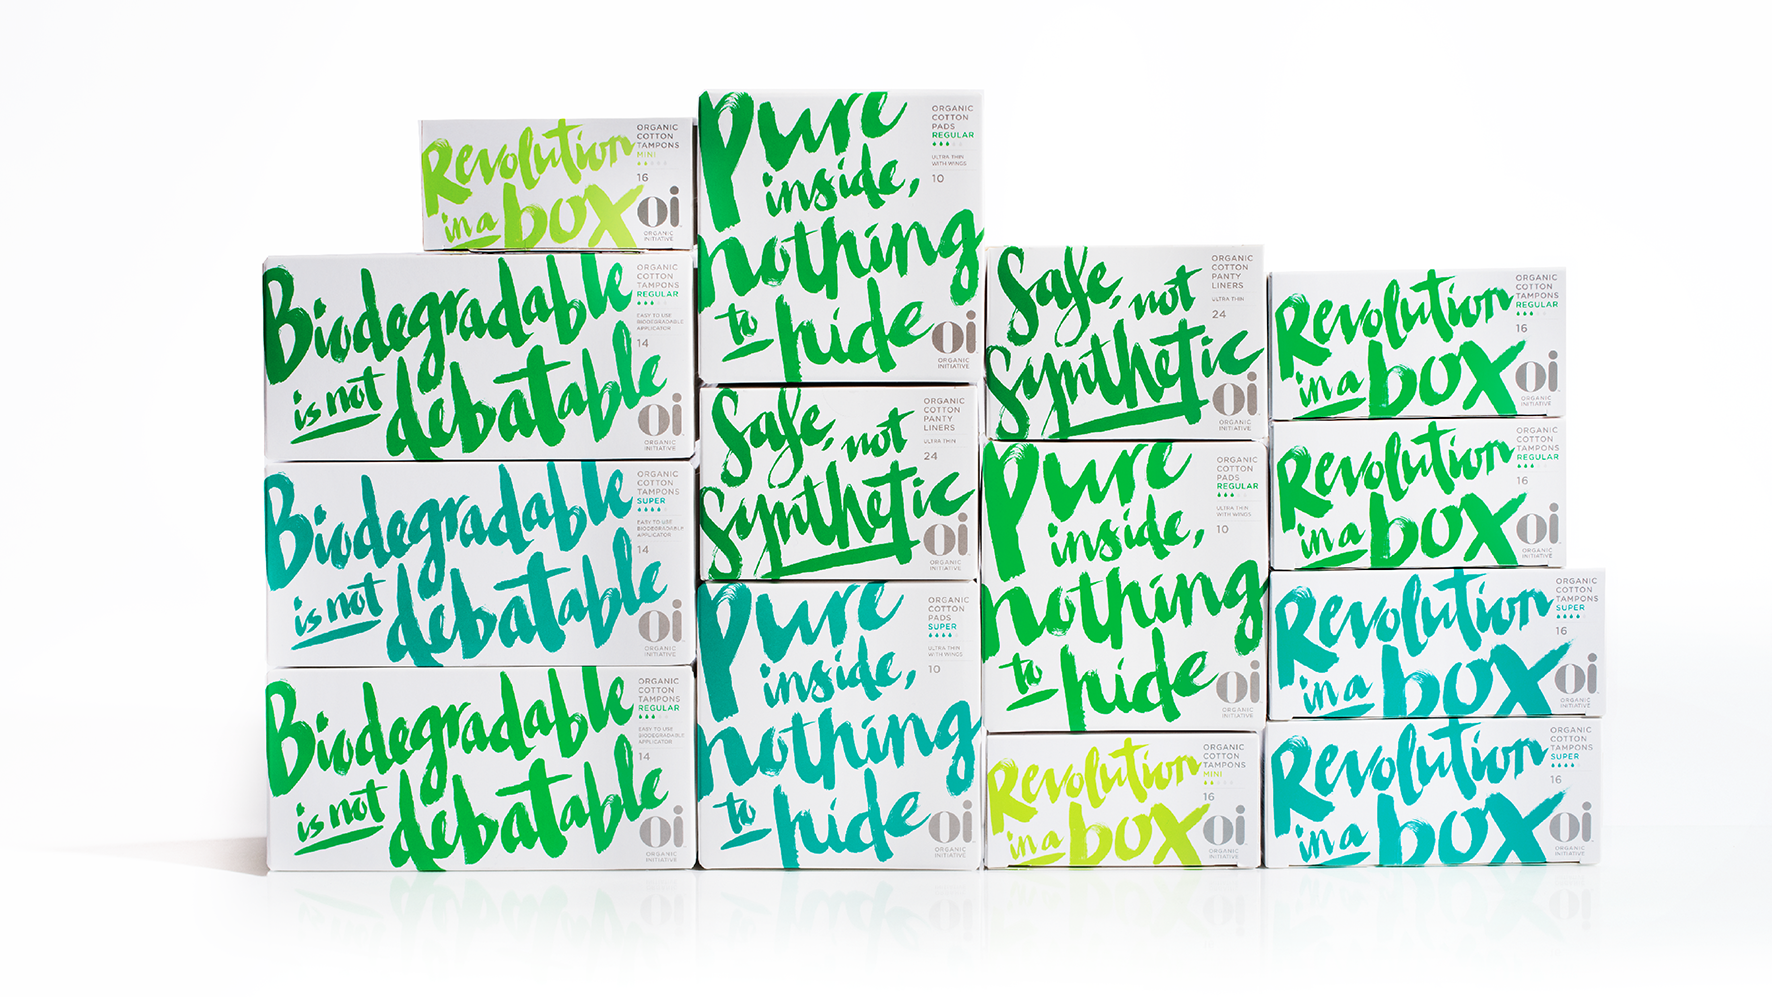 Revolution
in a box
ORGANIC
COTTON
TAMPONS
MINI
16
oi
ORGANIC
INITIATIVE
Biodegradable
is not debatable
ORGANIC
COTTON
TAMPONS
REGULAR
EASY TO USE
BIODEGRADABLE
APPLICATOR
14
oi
ORGANIC
INITIATIVE
Biodegradable
is not debatable
ORGANIC
COTTON
TAMPONS
SUPER
EASY TO USE
BIODEGRADABLE
APPLICATOR
14
oi
ORGANIC
INITIATIVE
Biodegradable
is not debatable
ORGANIC
COTTON
TAMPONS
REGULAR
EASY TO USE
BIODEGRADABLE
APPLICATOR
14
oi
ORGANIC
INITIATIVE
Pure
inside,
nothing
to hide
ORGANIC
COTTON
PADS
REGULAR
ULTRA THIN
WITH WINGS
10
oi
ORGANIC
INITIATIVE
Safe, not
Synthetic
ORGANIC
COTTON
PANTY
LINERS
ULTRA THIN
24
oi
ORGANIC
INITIATIVE
Pure
inside,
nothing
to hide
ORGANIC
COTTON
PADS
SUPER
ULTRA THIN
WITH WINGS
10
oi
ORGANIC
INITIATIVE
Safe, not
Synthetic
ORGANIC
COTTON
PANTY
LINERS
ULTRA THIN
24
oi
ORGANIC
INITIATIVE
Pure
inside,
nothing
to hide
ORGANIC
COTTON
PADS
REGULAR
ULTRA THIN
WITH WINGS
10
oi
ORGANIC
INITIATIVE
Revolution
in a box
ORGANIC
COTTON
TAMPONS
MINI
16
oi
ORGANIC
INITIATIVE
Revolution
in a box
ORGANIC
COTTON
TAMPONS
REGULAR
16
oi
ORGANIC
INITIATIVE
Revolution
in a box
ORGANIC
COTTON
TAMPONS
REGULAR
16
oi
ORGANIC
INITIATIVE
Revolution
in a box
ORGANIC
COTTON
TAMPONS
SUPER
16
oi
ORGANIC
INITIATIVE
Revolution
in a box
ORGANIC
COTTON
TAMPONS
SUPER
16
oi
ORGANIC
INITIATIVE